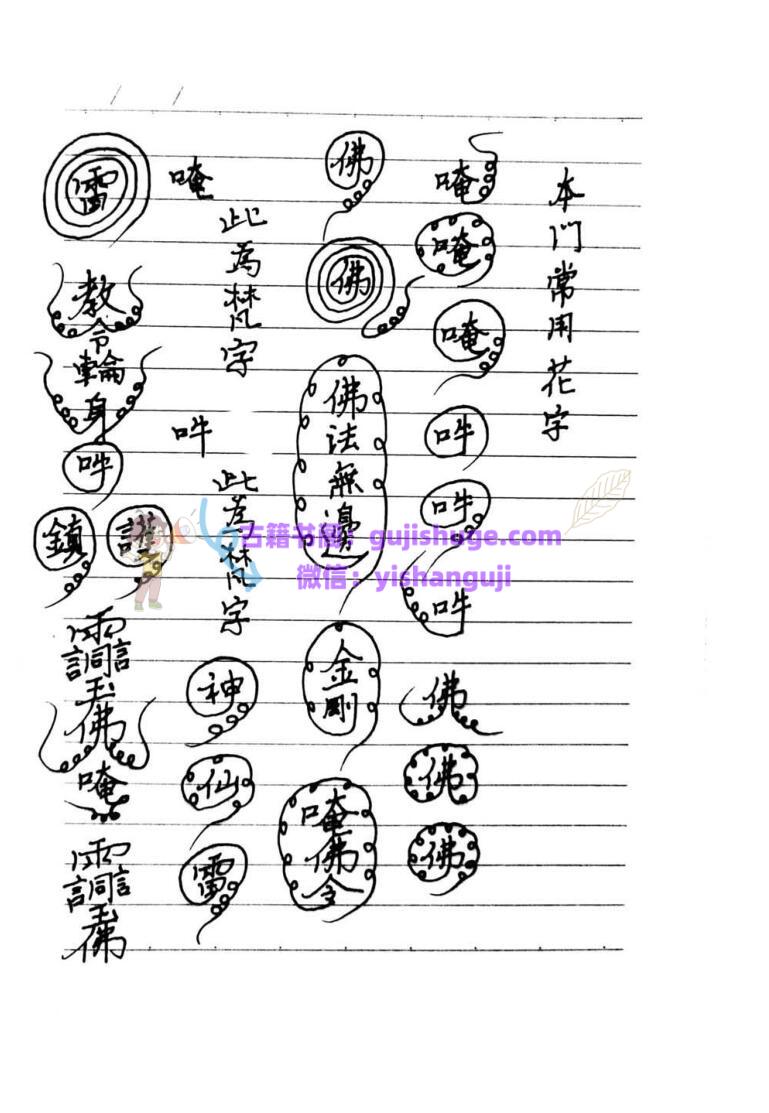 本門常用花字
唵
唵
唵
吽
吽
吽
佛
佛
佛
佛
佛
佛法無邊
金剛
唵佛令
唵
此為梵字
吽
此為梵字
神
仙
雷
雷
教令輪身
吽
鎮
護
佛
唵
佛
古籍书阁：gujishuge.com
微信：yishanguji